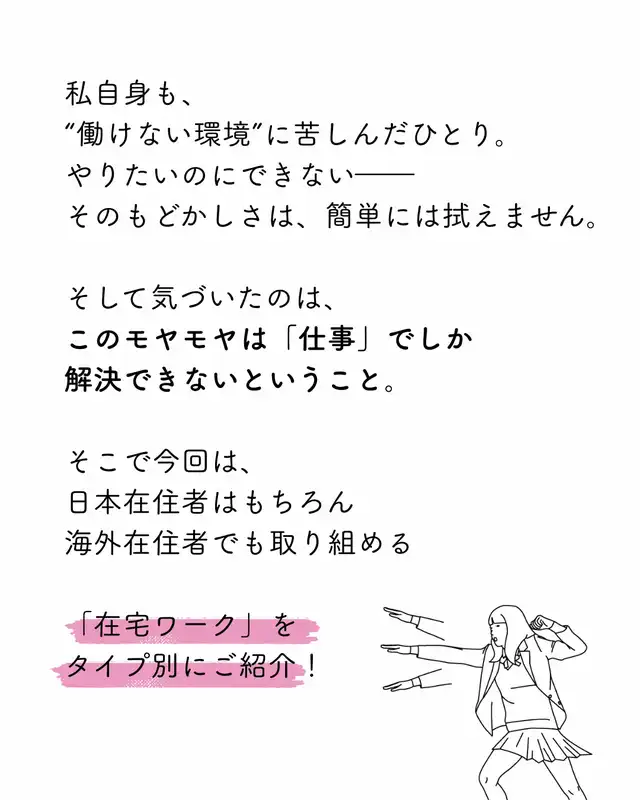 私自身も、
“働けない環境”に苦しんだひとり。
やりたいのにできない——
そのもどかしさは、簡単には拭えません。
そして気づいたのは、
このモヤモヤは「仕事」でしか
解決できないということ。
そこで今回は、
日本在住者はもちろん
海外在住者でも取り組める
「在宅ワーク」を
タイプ別にご紹介！